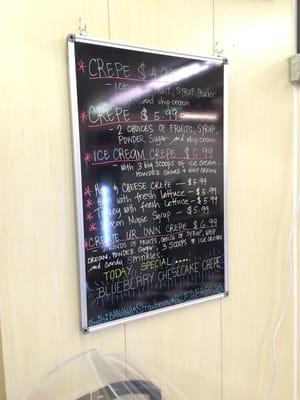 * CREPE $ 4.99
FRUIT, SYRUP, Powder
and whip cream
* CREPE $ 5.99
- 2 CHOICES OF FRUITS, SYRUP,
POWDER Sugar and whip cream
* ICE CREAM CREPE $ 5.99
- with 3 big scoops of ice cream,
POWDER SUGAR + whip cream
* & CHEESE CREPE — $ 5.99
* with fresh lettuce - $ 5.99
* Turkey with fresh Lettuce - $ 5.99
* Maple Syrup - $ 5.99
* CREATE UR OWN CREPE $ 6.99
OF FRUITS, CHOICE OF SYRUP, WHIP
CREAM, POWDER Sugar, 3 SCOOPS of ICE CREAM
and Candy Sprinkles
TODAY SPECIAL....
BLUEBERRY CHESECAKE CREPE
BANANA Strawberry BLUEBERRY